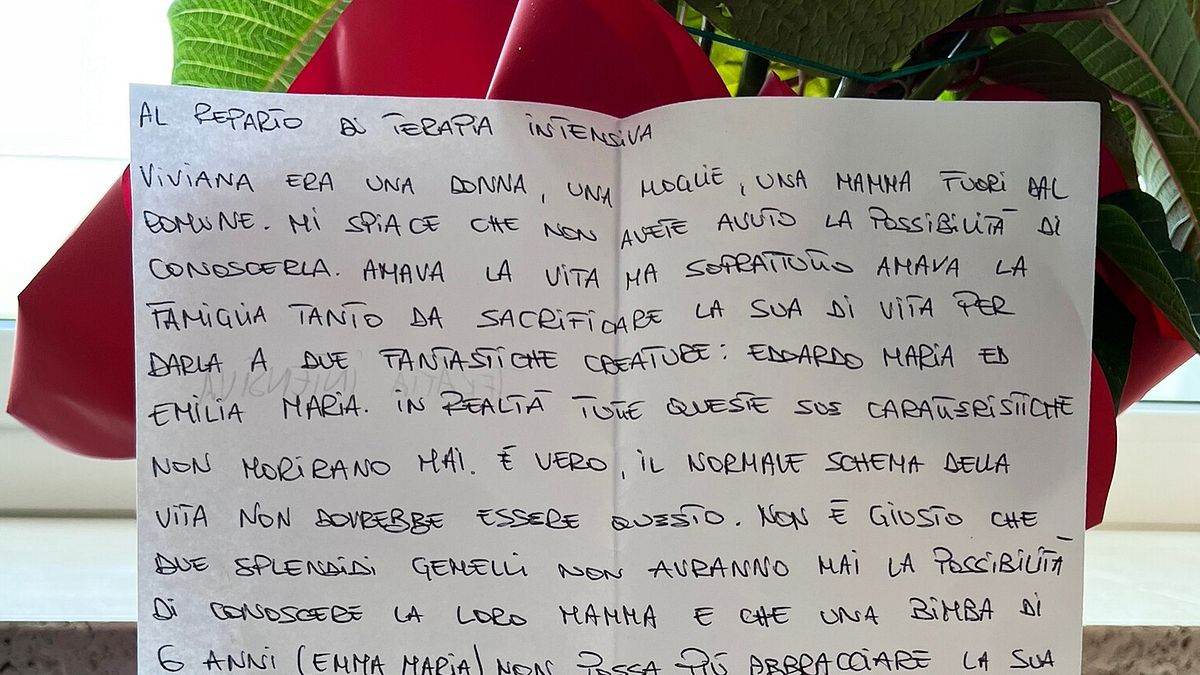 AL REPARTO DI TERAPIA INTENSIVA
VIVIANA ERA UNA DONNA, UNA MOGLIE, UNA MAMMA FUORI DAL
COMUNE. MI SPIACE CHE NON AVETE AVUTO LA POSSIBILITÀ DI
CONOSCERLA. AMAVA LA VITA MA SOPRATTUTTO AMAVA LA
FAMIGLIA TANTO DA SACRIFICARE LA SUA DI VITA PER
DARLA A DUE FANTASTICHE CREATURE: EDOARDO MARIA ED
EMILIA MARIA. IN REALTÀ TUTTE QUESTE SUE CARATTERISTICHE
NON MORIRANO MAI. È VERO, IL NORMALE SCHEMA DELLA
VITA NON DOVREBBE ESSERE QUESTO. NON È GIUSTO CHE
DUE SPLENDIDI GEMELLI NON AVRANNO MAI LA POSSIBILITÀ
DI CONOSCERE LA LORO MAMMA E CHE UNA BIMBA DI
6 ANNI (EMMA MARIA) NON POSSA PIÙ ABBRACCIARE LA SUA